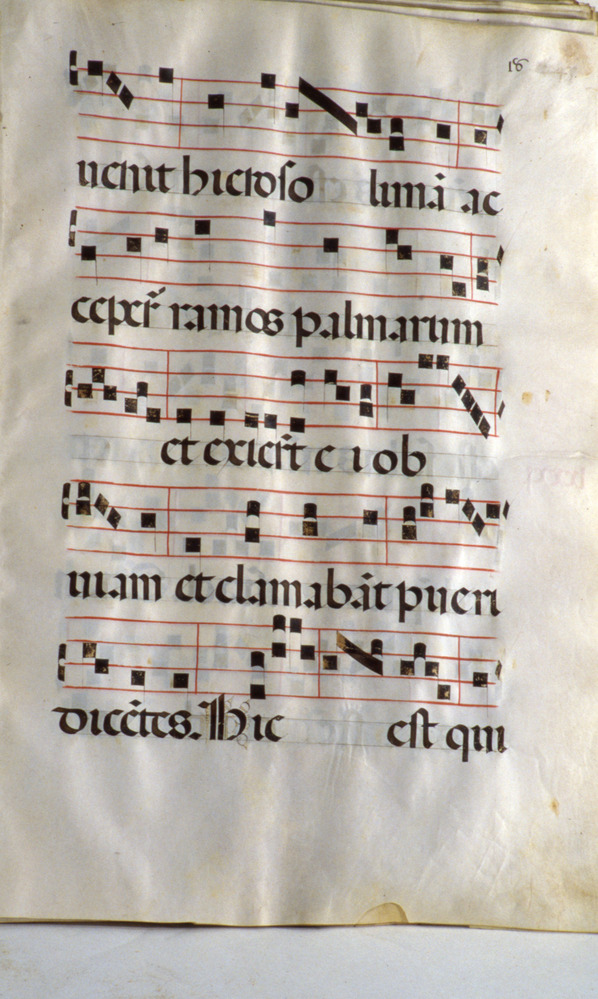 18
uenit hieroso limā ac
ceper̄ ramos palmarum
et exier̄t e i ob
uiam et clamabāt pueri
dicētes. Hic est qui